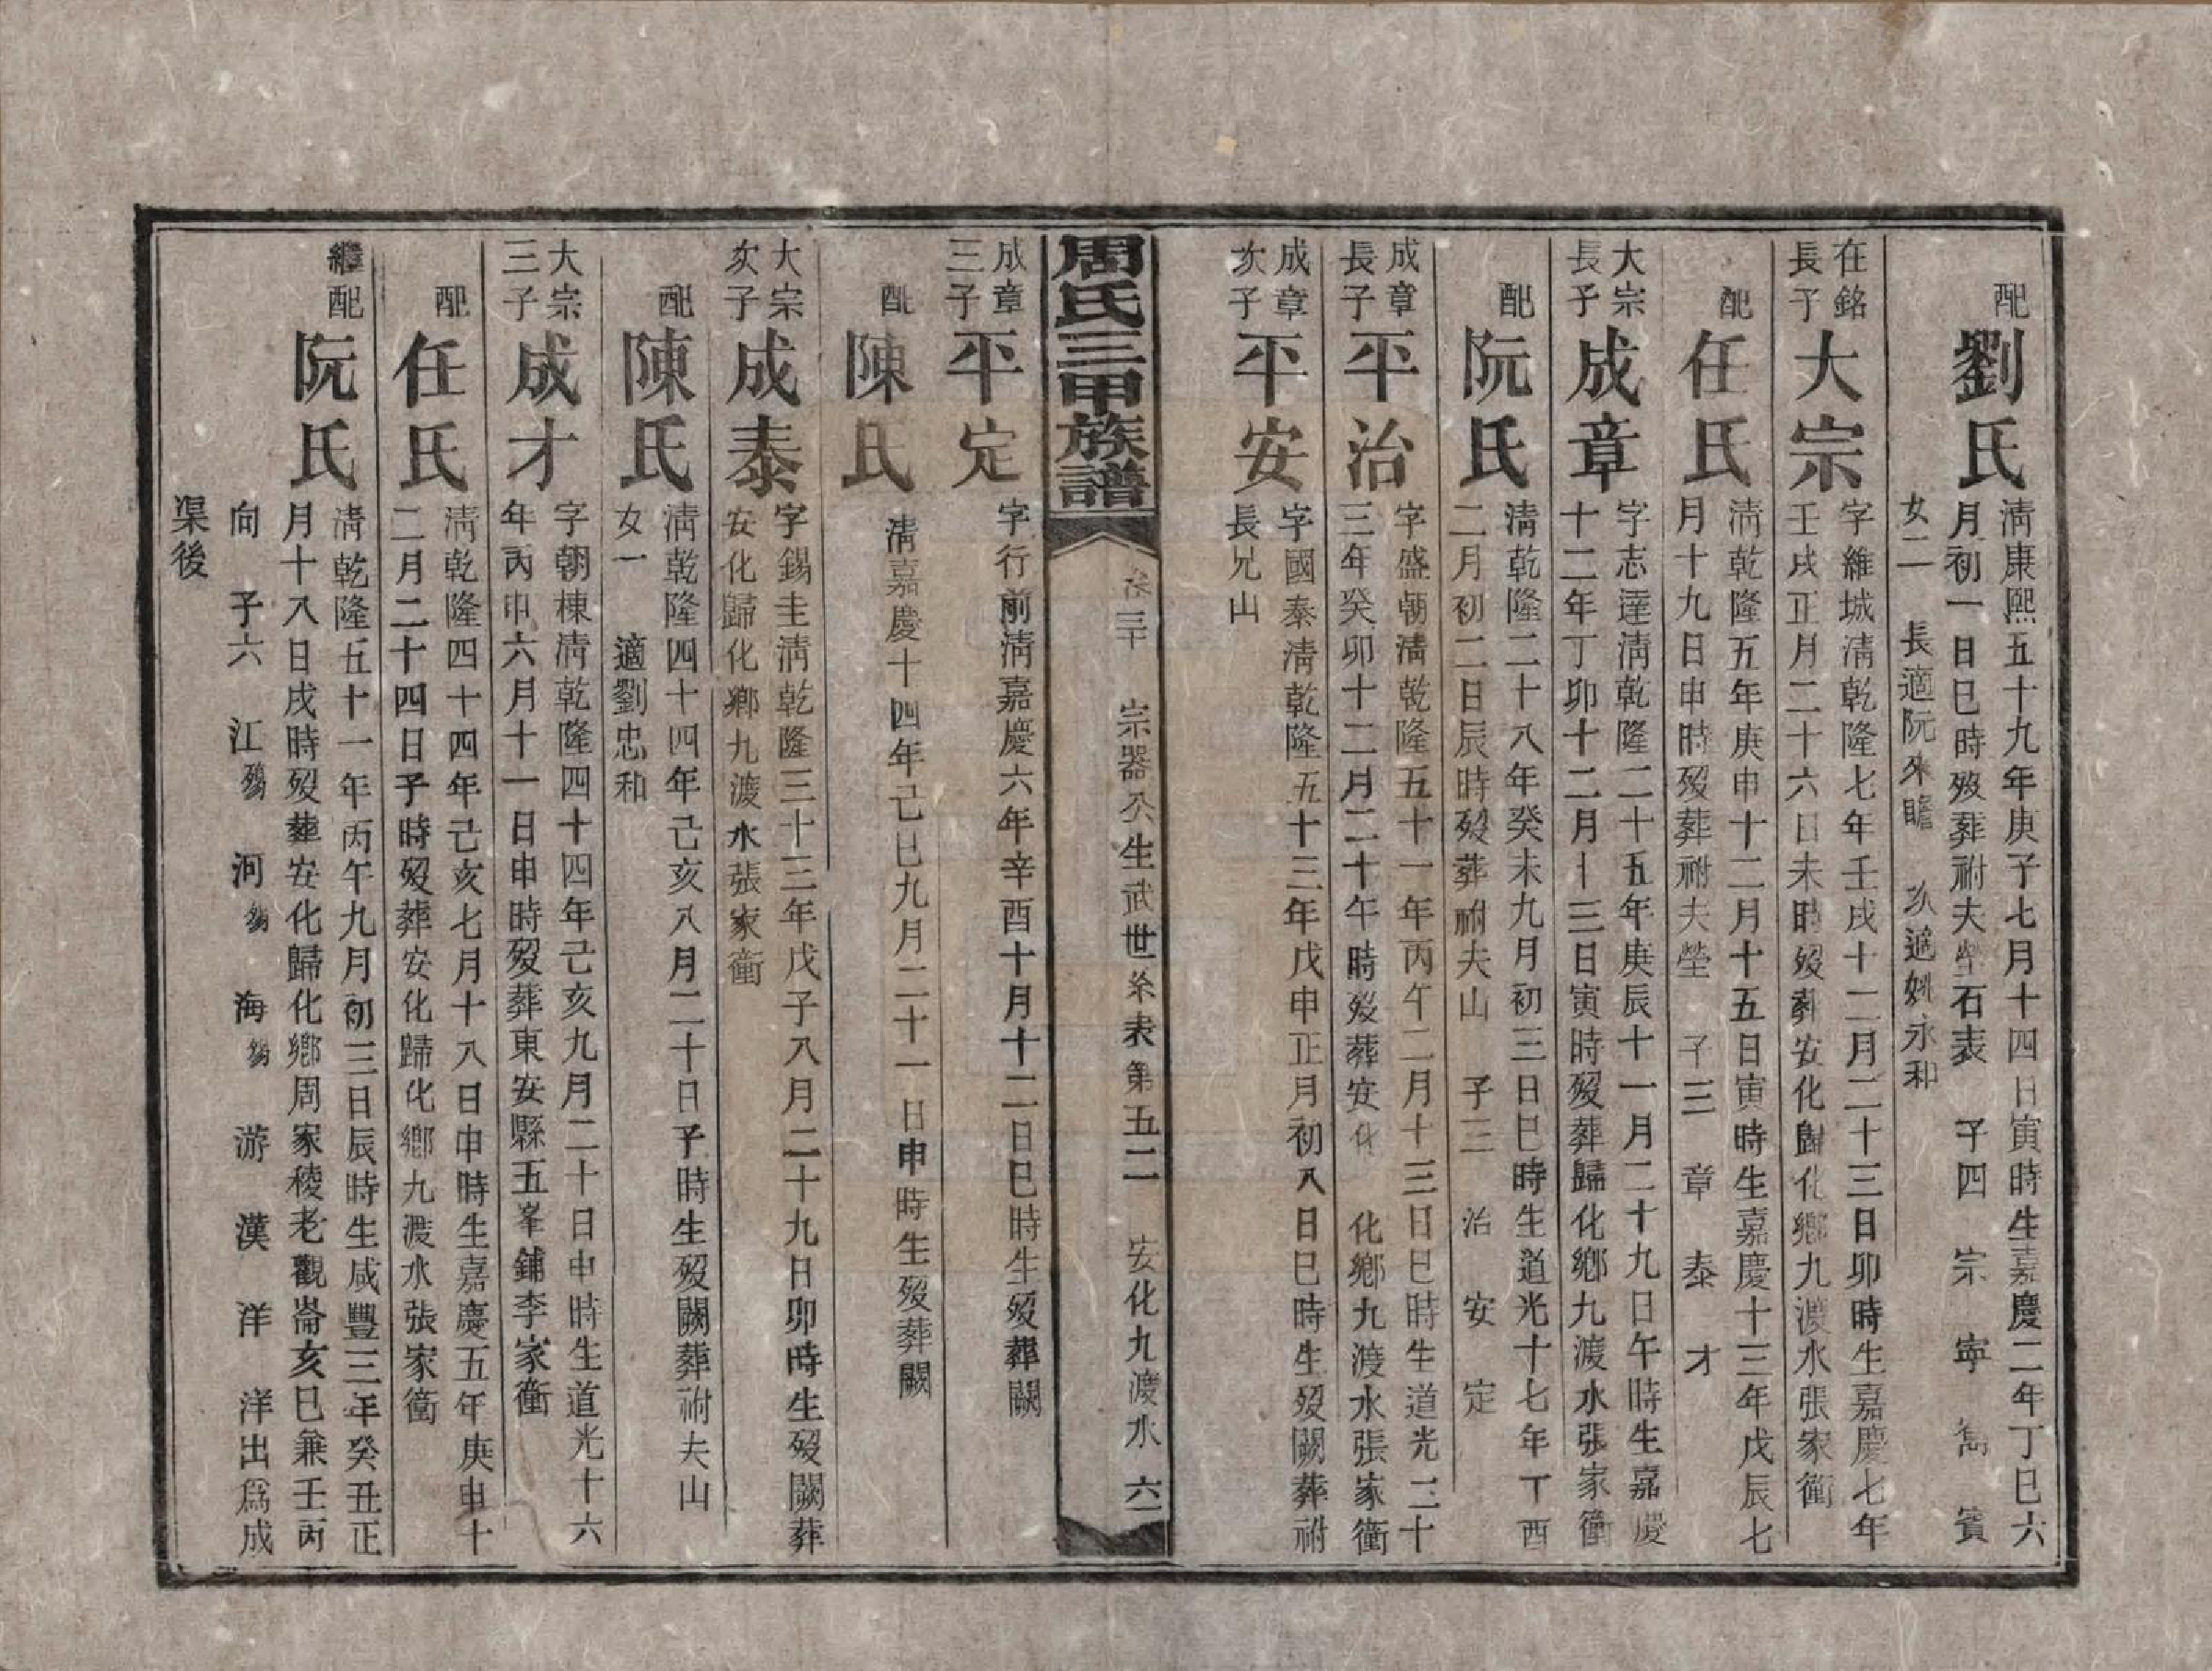 配劉氏
清康熙五十九年庚子七月十四日寅時生嘉慶二年丁巳六
月初一日巳時歿葬祔夫塋石表 子四 宗 寧 雋 賓
女二 長適阮來瞻 次適姚永和
在銘長子大宗
字維城清乾隆七年壬戌十二月二十三日卯時生嘉慶七年
壬戌正月二十六日未時歿葬安化歸化鄉九渡水張家衝
配任氏
清乾隆五年庚申十二月十五日寅時生嘉慶十三年戊辰七
月十九日申時歿葬祔夫塋 子三 章 泰 才
大宗長子成章
字志達清乾隆二十五年庚辰十一月二十九日午時生嘉慶
十二年丁卯十二月十三日寅時歿葬歸化鄉九渡水張家衝
配阮氏
清乾隆二十八年癸未九月初三日巳時生道光十七年丁酉
二月初二日辰時歿葬祔夫山 子三 治 安 定
成章長子平治
字盛朝清乾隆五十一年丙午二月十三日巳時生道光二十
三年癸卯十二月二十午時歿葬安化 化鄉九渡水張家衝
成章次子平安
字國泰清乾隆五十三年戊申正月初八日巳時生歿闕葬祔
長兄山
周氏三甲族譜
卷三十 宗器公生武世系表第五二 安化九渡水 六
成章三子平定
字行前清嘉慶六年辛酉十月十二日巳時生歿葬闕
配陳氏
清嘉慶十四年己巳九月二十一日申時生歿葬闕
大宗次子成泰
字錫圭清乾隆三十三年戊子八月二十九日卯時生歿闕葬
安化歸化鄉九渡水張家衝
配陳氏
清乾隆四十四年己亥八月二十日子時生歿闕葬祔夫山
女一 適劉忠和
大宗三子成才
字朝棟清乾隆四十四年己亥九月二十日申時生道光十六
年丙申六月十一日申時歿葬東安縣五峯鋪李家衝
配任氏
清乾隆四十四年己亥七月十八日申時生嘉慶五年庚申十
二月二十四日子時歿葬安化歸化鄉九渡水張家衝
繼配阮氏
清乾隆五十一年丙午九月初三日辰時生咸豐三年癸丑正
月十八日戌時歿葬安化歸化鄉周家稜老觀崙亥巳兼壬丙
向 子六 江殤 河殤 海殤 游 漢 洋 洋出為成
渠後